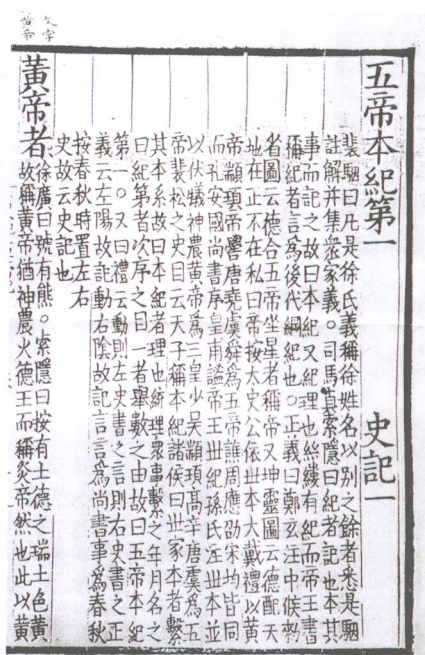 五帝本紀第一 史記一
裴駰曰凡是徐氏義稱徐姓名以别之餘者悉是駰
註解并集衆家義。司馬貞索隱曰紀者記也本其
事而記之故曰本紀又紀理也絲縷有紀而帝王書
稱紀者言爲後代綱紀也。正義曰鄭玄注中候勑
省圖云德合五帝坐星者稱帝又坤靈圖云德配天
地在正不在私曰帝按太史公依丗本大戴禮以黄
帝顓頊帝嚳唐堯虞舜爲五帝譙周應劭宋均皆同
而孔安國尚書序皇甫謐帝王丗紀孫氏注丗本並
以伏犧神農黄帝爲三皇少昊顓頊髙辛唐虞爲五
帝裴松之史目云天子稱本紀諸侯曰丗家本者繫
其本系故曰本紀者理也統理衆事繫之年月名之
曰紀第者次序之目一者舉數之由故曰五帝本紀
第一。又曰禮云動則左史書之言則右史書之正
義云左陽故記動右陰故記言言爲尚書事爲春秋
按春秋時置左右
史故云史記也
黃帝者
徐廣曰號有熊。索隱曰按有土德之瑞土色黄
故稱黄帝猶神農火德王而稱炎帝然也此以黄